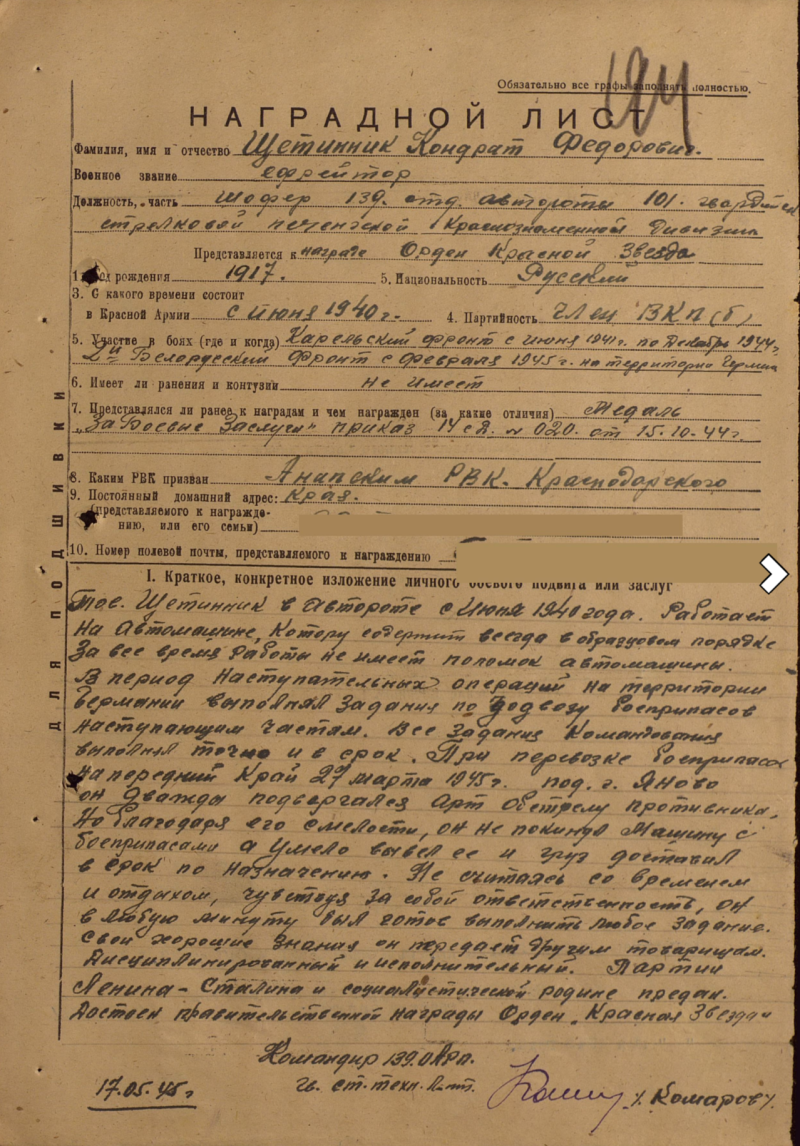 Обязательно все графы заполнять полностью.
НАГРАДНОЙ ЛИСТ
Фамилия, имя и отчество Щетинник Кондрат Федорович.
Военное звание ефрейтор
Должность, часть Шофер 139. отд. автороты 101. гвардейск
стрелковой печенгской Краснознаменной дивизии
Представляется к награде Орден Красной Звезда
1. Год рождения 1917. 5. Национальность Русский
3. С какого времени состоит
в Красной Армии с Июня 1940 г. 4. Партийность Член ВКП(б)
5. Участие в боях (где и когда) Карельский фронт с июня 1941 г. по Декабрь 1944.
2й Белорусский фронт с февраля 1945 г. на территории
6. Имеет ли ранения и контузии не имеет
7. Представлялся ли ранее к наградам и чем награжден (за какие отличия) Медаль
„За Боевые Заслуги" приказ 14 сд. № 020. от 15.10.44 г.
8. Каким РВК призван Анапским РВК. Краснодарского
9. Постоянный домашний адрес: края.
(представляемого к награжде-
нию, или его семьи)
10. Номер полевой почты, представляемого к награждению
I. Краткое, конкретное изложение личного боевого подвига или заслуг
Тов. Щетинник в автороте с Июня 1940 года. Работает
на автомашине, котору содержит всегда в образцовом порядке
За все время работы не имеет поломок автомашины.
В период наступательных операций на территории
Германии выполнял задания по подвозу боеприпасов
наступающим частям. Все задания Командования
выполнял точно и в срок. При перевозке боеприпасов
на передний Край 27 марта 1945 г. под. г. Яново
он дважды подвергался арт обстрелу противника.
Но благодаря его смелости, он не покинул машину с
боеприпасами а умело вывел ее и груз доставил
в срок по назначению. Не считаясь со временем
и отдыхом, чувствуя за собой ответственность, он
в любую минуту был готов выполнить любое задание.
Свои хорошие знания он передает другим товарищам.
Дисциплинированный и исполнительный. Партии
Ленина-Сталина и социалистической родине предан.
Достоин правительственной награды Орден „Красная Звезда"
Командир 139. ОАРП.
Гв. ст. техн. л-нт.
17.05.45 г /Комаров/.
ДЛЯ ПОДШИВКИ